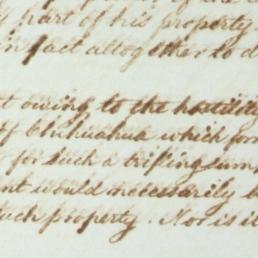 part of his property
in fact altogether to d
t owing to the hostility
of Chihuahua which for
for such a trifling sum
nt would necessarily b
such property. Nor is it